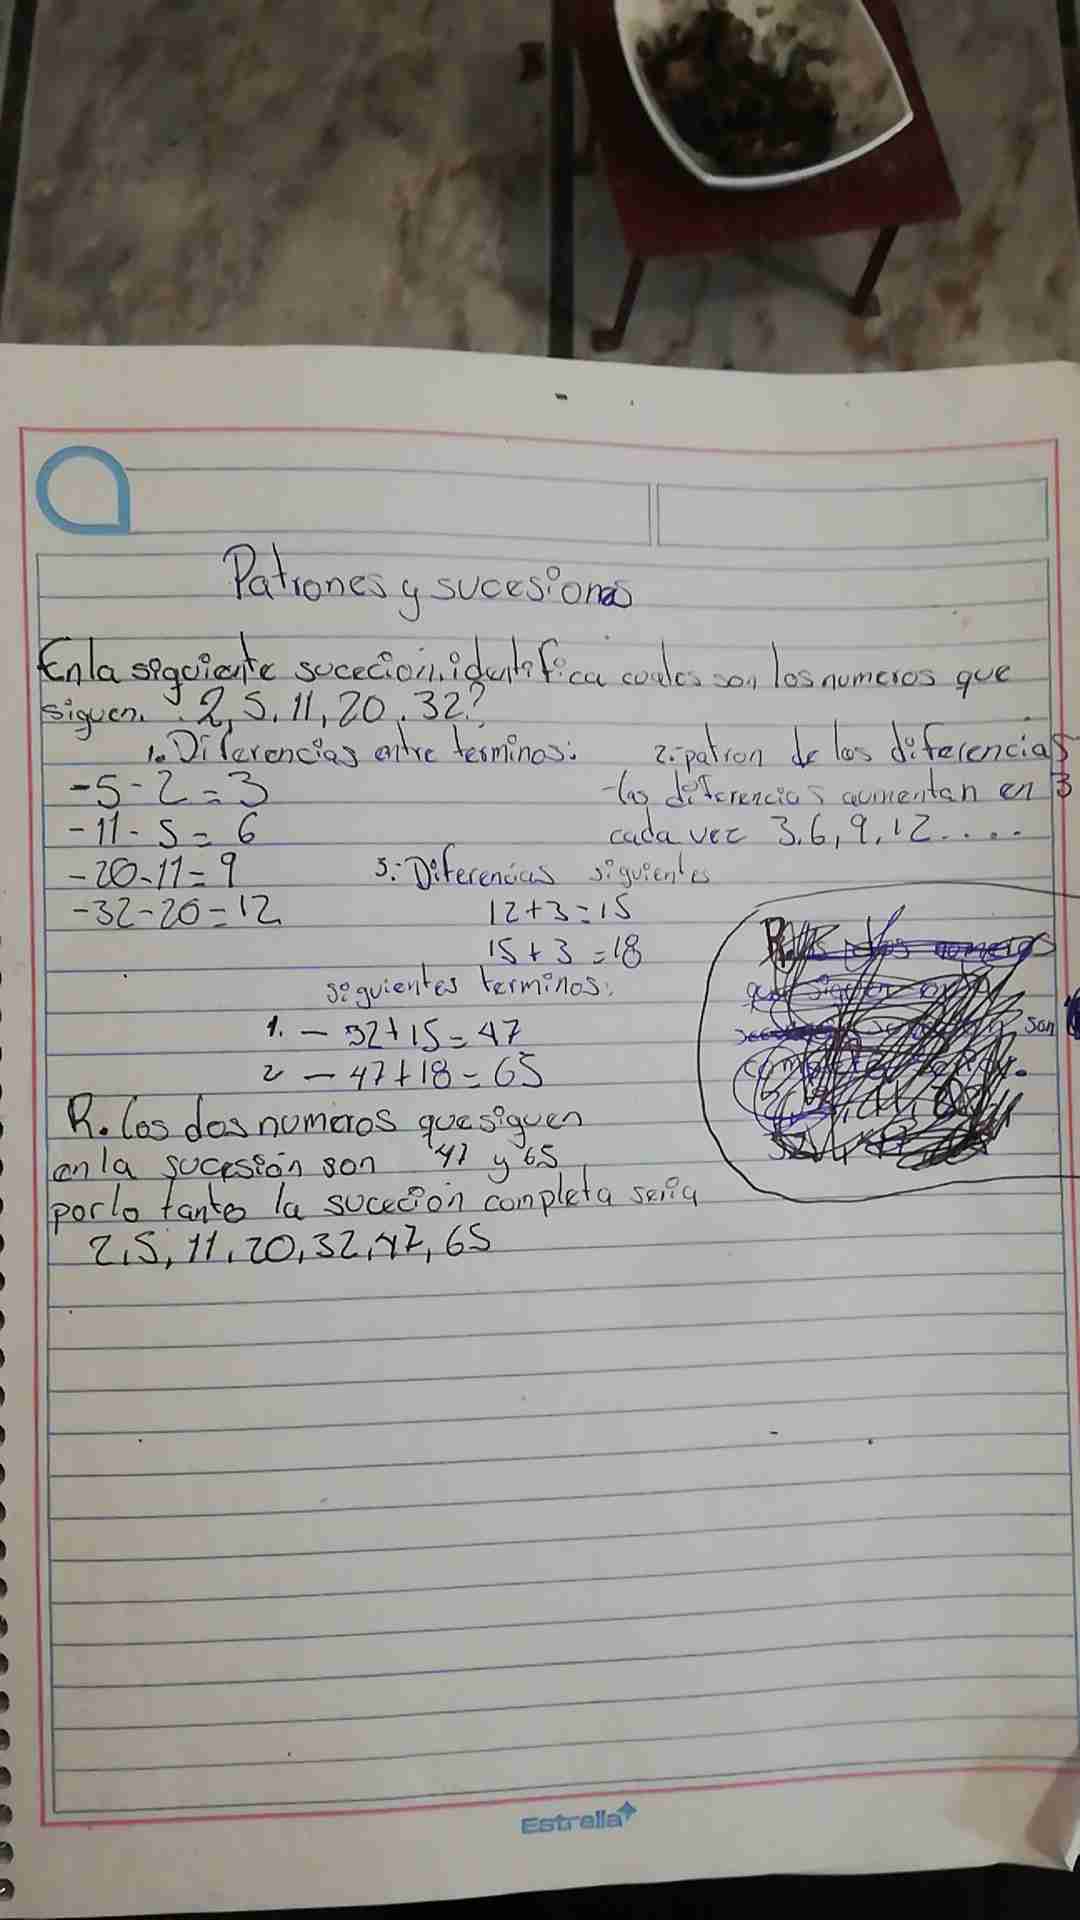 Patrones y sucesiones
En la siguiente suceción identifica cuales son los numeros que
siguen. 2, 5, 11, 20, 32?
1. Diferencias entre terminos:
- 5 - 2 = 3
- 11 - 5 = 6
- 20 - 11 = 9
- 32 - 20 = 12
2.- patron de las diferencias
- las diferencias aumentan en 3
cada vez 3, 6, 9, 12.....
3.- Diferencias siguientes
12 + 3 = 15
15 + 3 = 18
siguientes terminos:
1. - 32 + 15 = 47
2 - 47 + 18 = 65
son
R. Los dos numeros que siguen
en la sucesión son 47 y 65
por lo tanto la suceción completa seria
2, 5, 11, 20, 32, 47, 65
Estrella